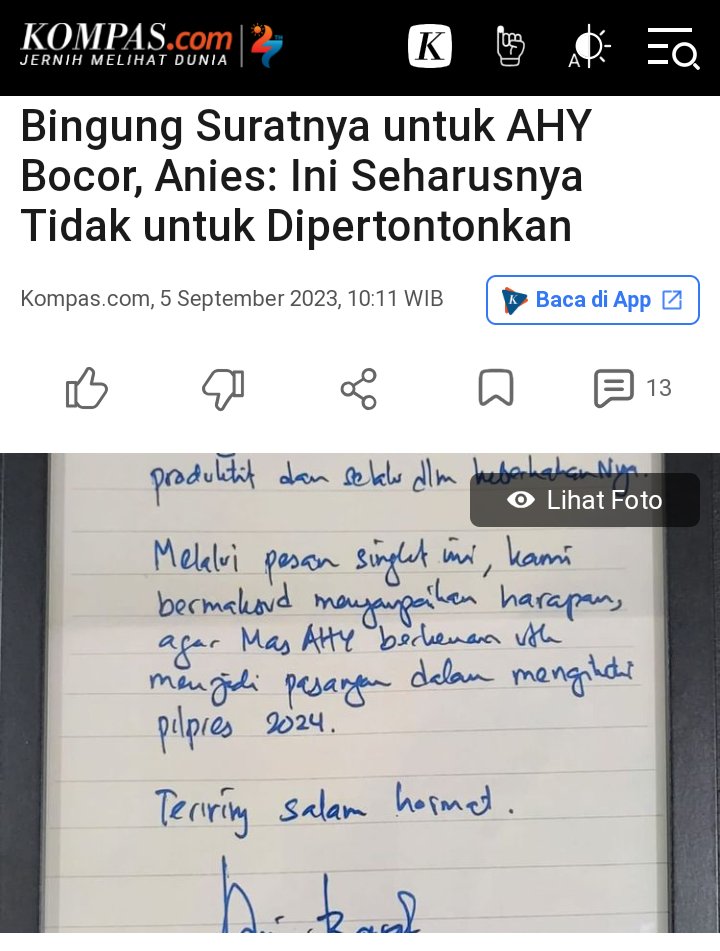 KOMPAS.com
JERNIH MELIHAT DUNIA
27TH
K
A
Bingung Suratnya untuk AHY
Bocor, Anies: Ini Seharusnya
Tidak untuk Dipertontonkan
Kompas.com, 5 September 2023, 10:11 WIB
K
Baca di App
13
produktif dan selalu dlm keberkahanNya.
Lihat Foto
Melalui pesan singkat ini, kami
bermaksud menyampaikan harapan,
agar Mas AHY berkenan utk
menjadi pasangan dalam mengikuti
pilpres 2024.
Teriring salam hormat.